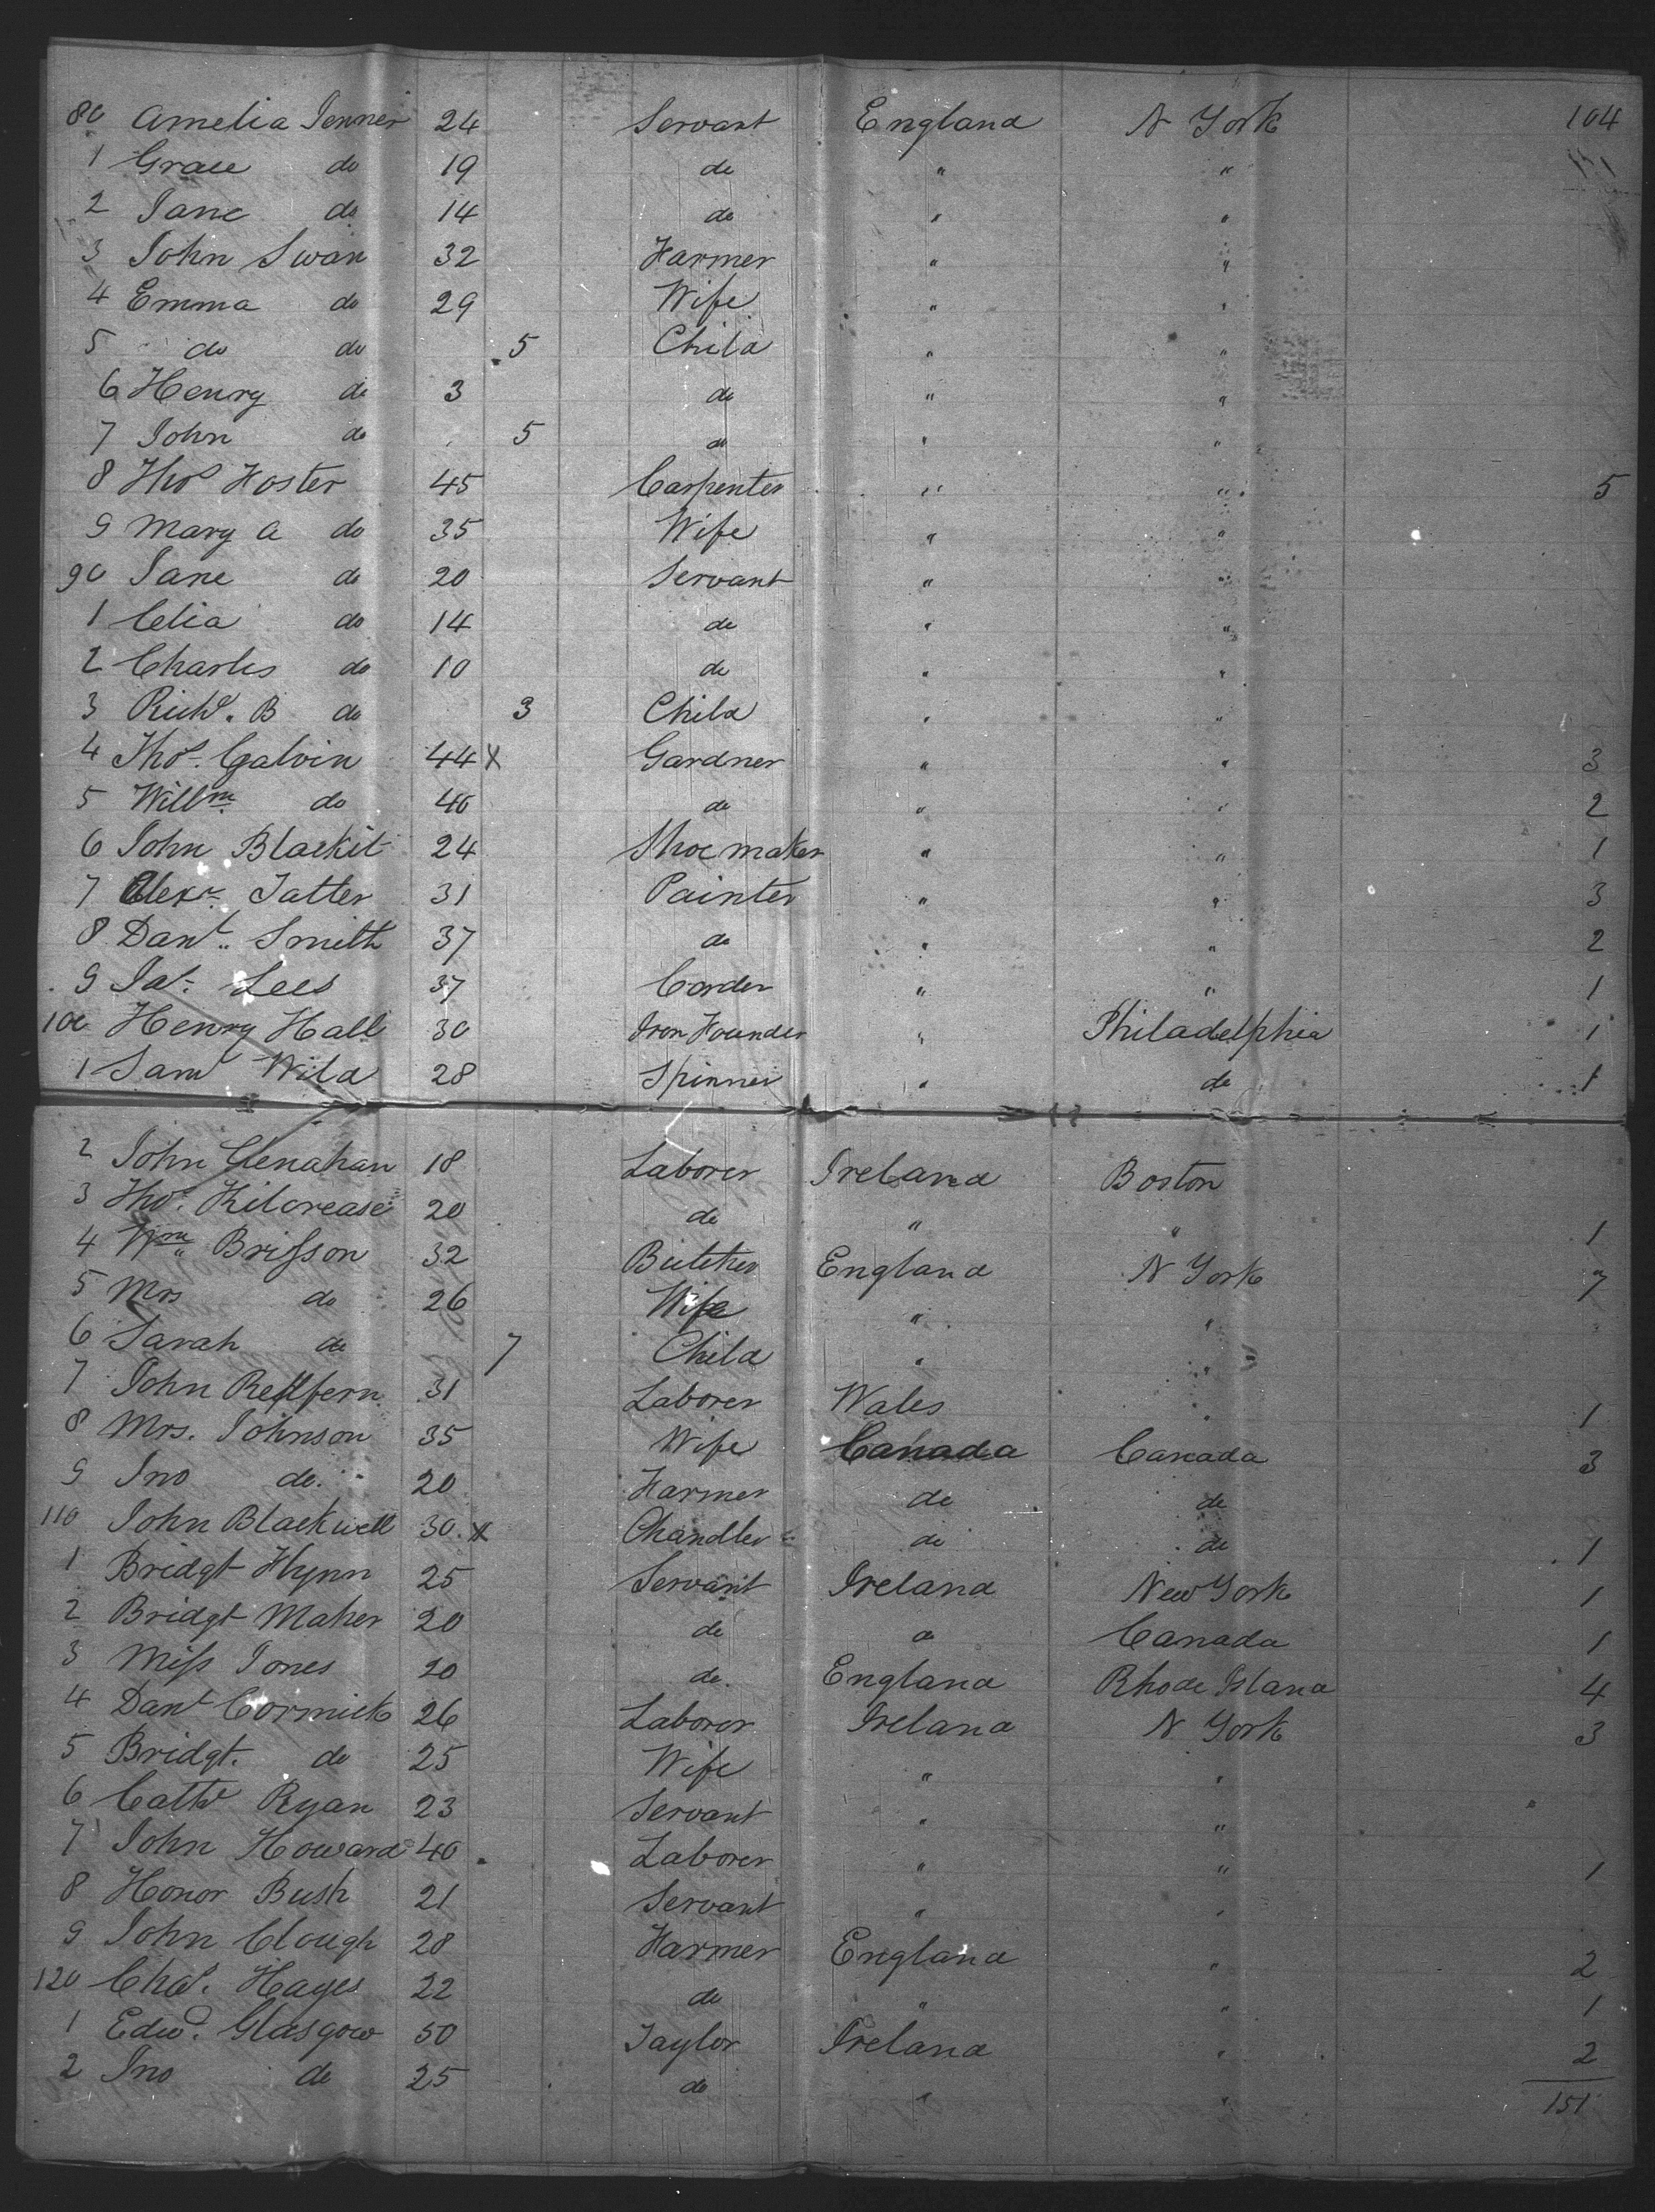 80 Amelia Jenner 24 Servant England N York 104
1 Grace do 19 do " "
2 Jane do 14 do " "
3 John Swan 32 Farmer " "
4 Emma do 29 Wife " "
5 do do 5 Child " "
6 Henry do 3 do " "
7 John do 5 do " "
8 Thos Foster 45 Carpenter " " 5
9 Mary A do 35 Wife " "
90 Jane do 20 Servant " "
1 Celia do 14 do " "
2 Charles do 10 do " "
3 Richd. B do 3 Child " "
4 Thos. Galvin 44 X Gardner " " 3
5 Willm. do 40 do " " 2
6 John Blackit 24 Shoemaker " " 1
7 Alexr. Tatter 31 Painter " " 3
8 Danl. Smith 37 do " " 2
9 Jas. Lees 37 Carder " " 1
100 Henry Hall 30 Iron Founder " Philadelphia 1
1 Saml Wild 28 Spinner " do 1
2 John Clenahan 18 Laborer Ireland Boston
3 Thos. Kilcrease 20 do " " 1
4 Wm Brisson 32 Butcher England N York 7
5 Mrs do 26 Wife " "
6 Sarah do 7 Child " "
7 John Redfern 31 Laborer Wales " 1
8 Mrs. Johnson 35 Wife Canada Canada 3
9 Jno do. 20 Farmer do do
110 John Blackwell 30 X Chandler do do 1
1 Bridgt Flynn 25 Servant Ireland New York 1
2 Bridgt Maher 20 do do Canada 1
3 Miss Jones 20 do. England Rhode Island 4
4 Danl Cormick 26 Laborer Ireland N York 3
5 Bridgt. do 25 Wife " "
6 Cathe Ryan 23 Servant " "
7 John Howard 40 Laborer " " 1
8 Honor Bush 21 Servant " "
9 John Clough 28 Farmer England " 2
120 Chas. Hayes 22 do " " 1
1 Edwd. Glasgow 50 Taylor Ireland " 2
2 Jno do 25 do " "
151